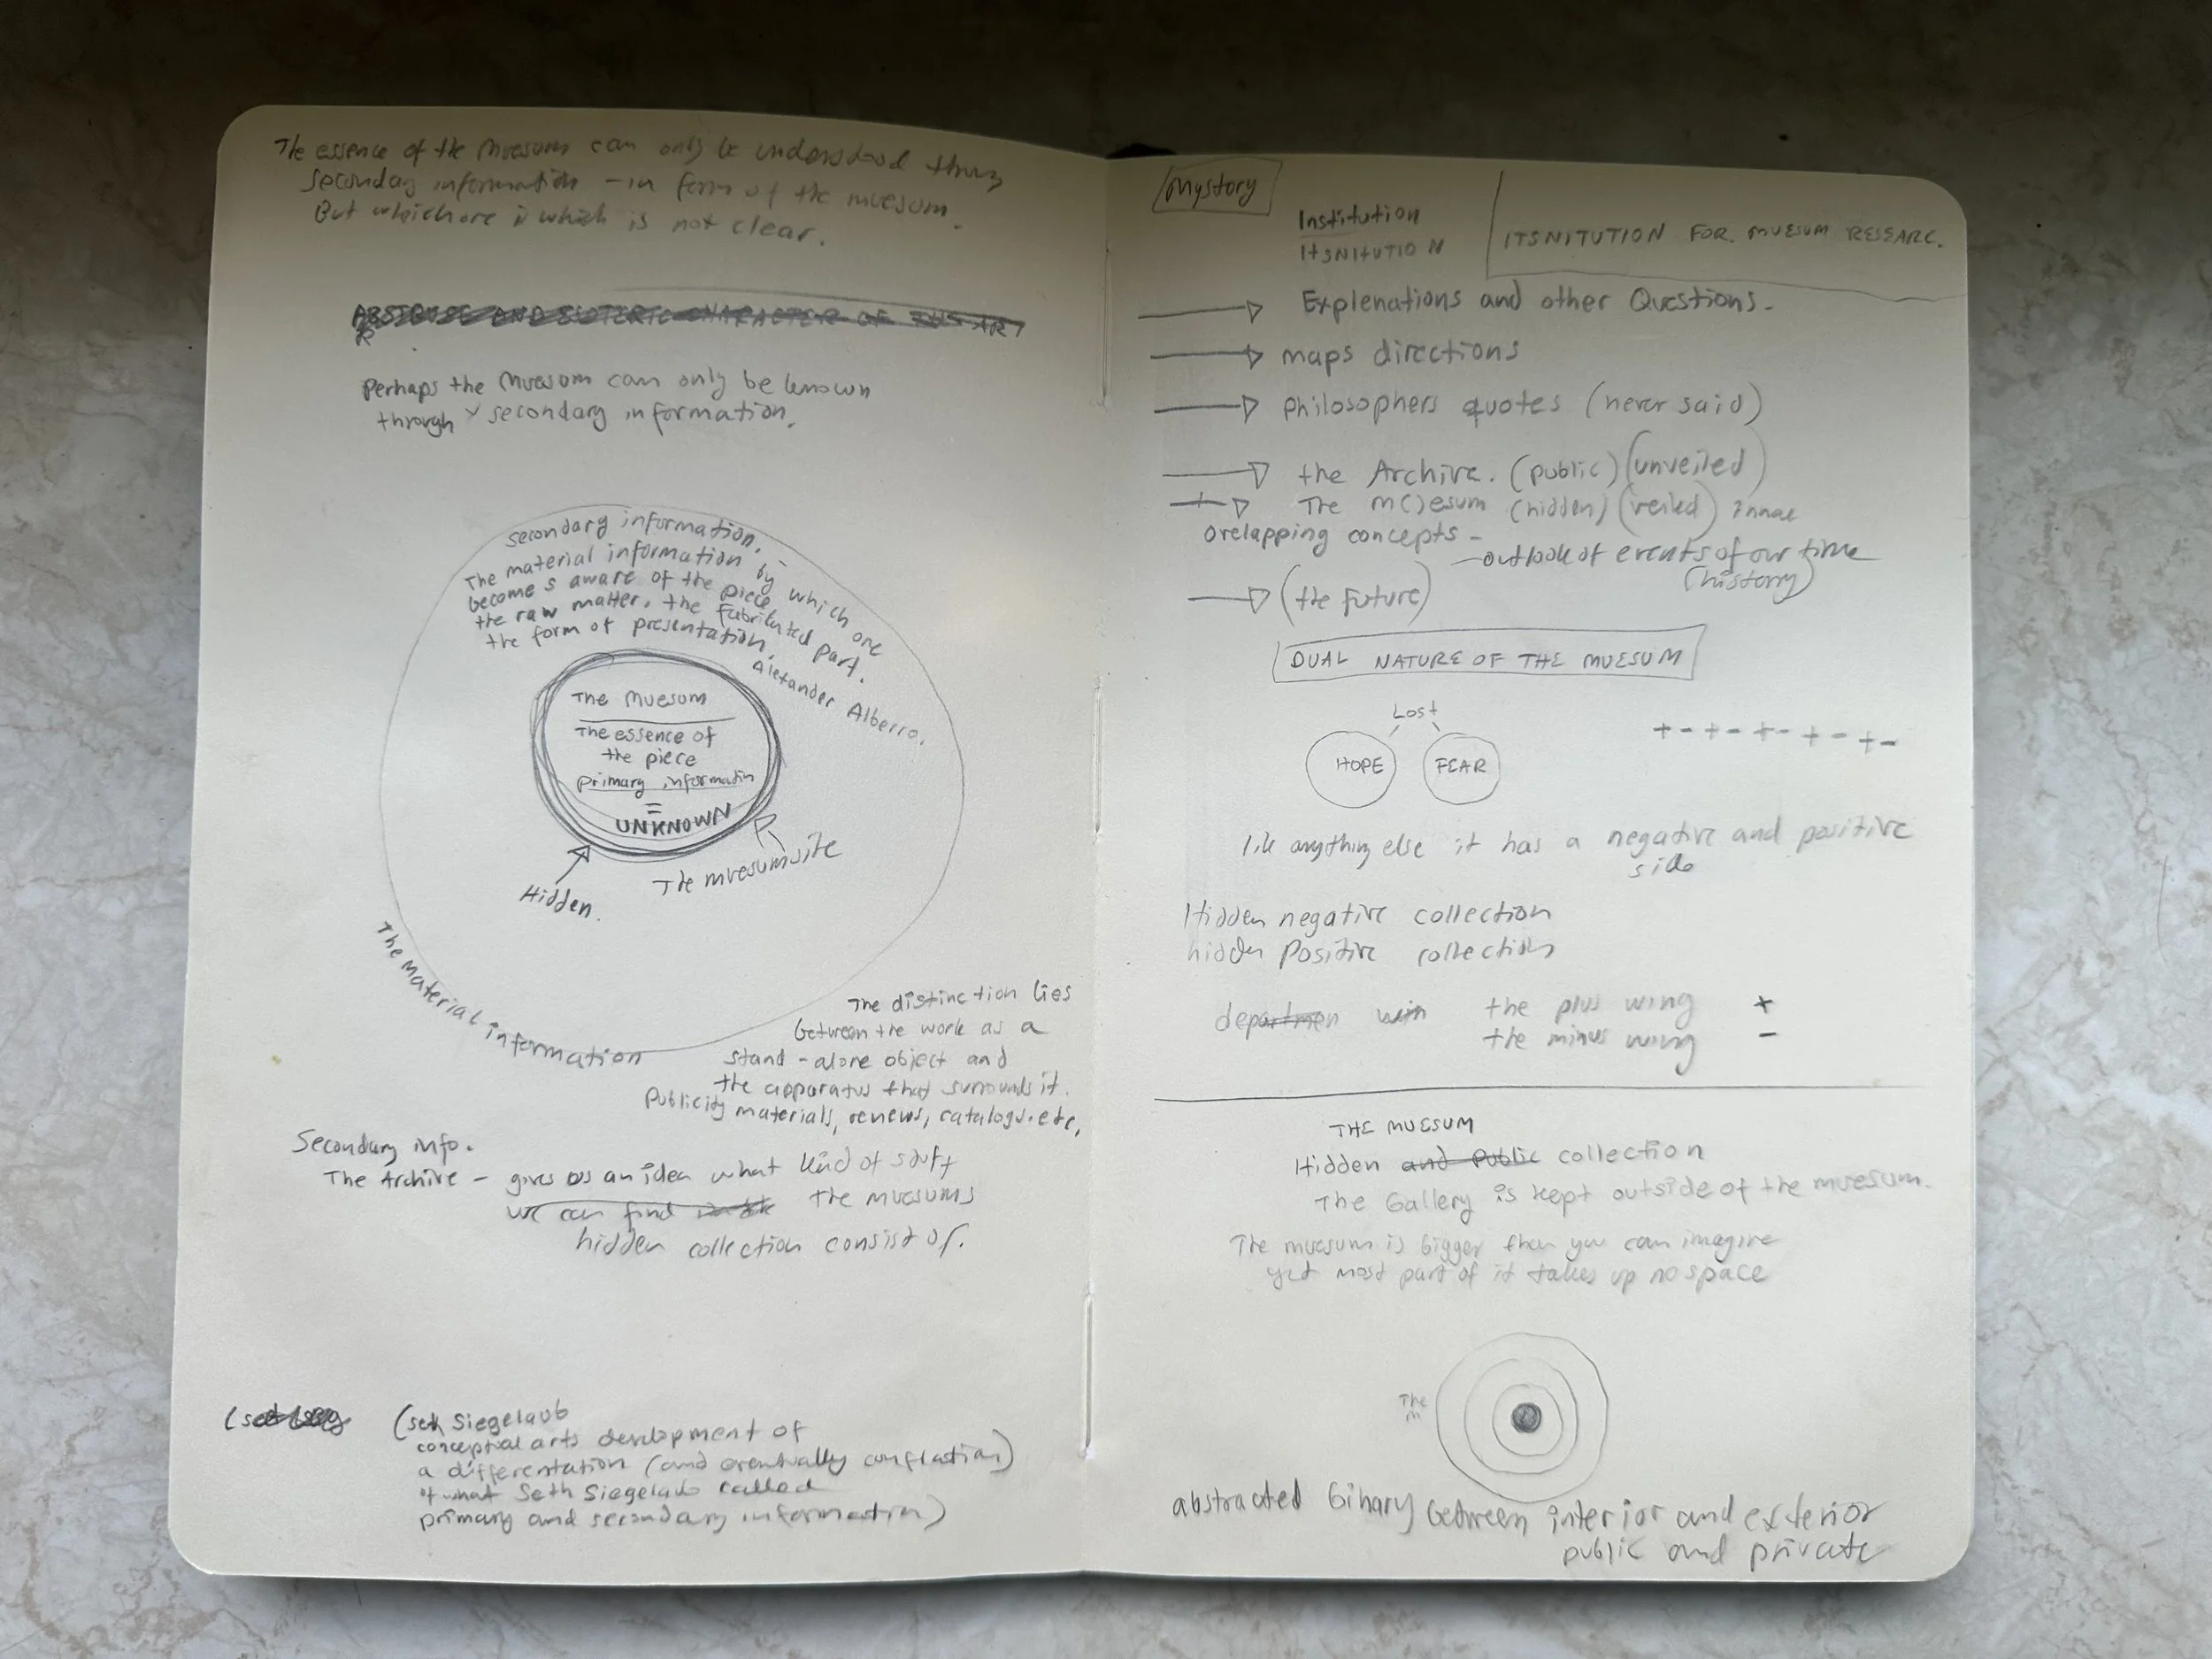 The essence of the Muesum can only be understood thru
seconday information - in form of the muesum.
But which one is which is not clear.
ABSTRUSE AND ESOTERIC CHARACTER OF THIS ART
Perhaps the Muesum can only be known
through secondary information.
Secondary information.
The material information by which one
becomes aware of the piece
the raw matter, the fabricated part.
the form of presentation.
Alexander Alberro.
The Muesum
The essence of
the piece
primary informatin
=
UNKNOWN
Hidden.
The muesumsite
The Material information
The distinction lies
between the work as a
stand-alone object and
the apparatus that surrounds it.
Publicity materials, reviews, catalogs. etc,
Secondary info.
The Archive - gives us an idea what kind of stuff
we can find the muesums
hidden collection consist of.
(seth Siegelaub
conceptual arts development of
a differentation (and eventually conflation)
of what Seth Siegelaub called
primary and secondary information)
Mystory
Institution
ITSNITUTION
ITSNITUTION FOR. MUESUM RESEARC.
Explenations and other Questions.
maps directions
philosophers quotes (never said)
the Archive. (public) (unveiled)
The m()esum (hidden) (veiled)
overlapping concepts -
- outlook of events of our time
(history)
(the future)
DUAL NATURE OF THE MUESUM
Lost
HOPE FEAR
+ - + - + - + - + -
like anything else it has a negative and positive
side
Hidden negative collection
hidden Positive collection
departmen with the plus wing +
the minus wing -
THE MUESUM
Hidden and Public collection
The Gallery is kept outside of the muesum.
The muesum is bigger then you can imagine
yet most part of it takes up no space
The
m
abstracted binary between interior and exterior
public and private